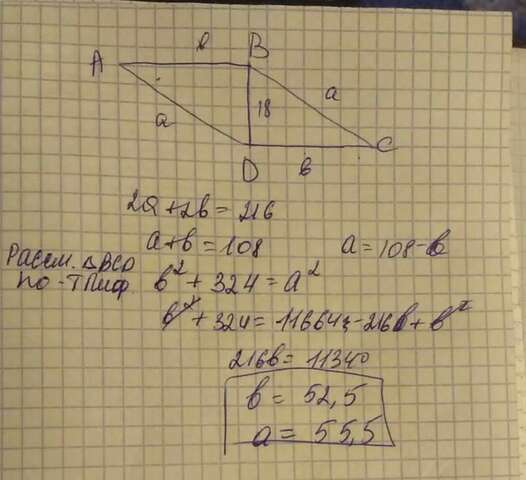 в B
A 18 a
a C
D в
2a+2в=216
a+в=108 a=108-в
Рассм. ΔBCD
по-Тпиф. в²+324=a²
в²+324=11664-216в+в²
216в=11340
в=52,5
a=55,5